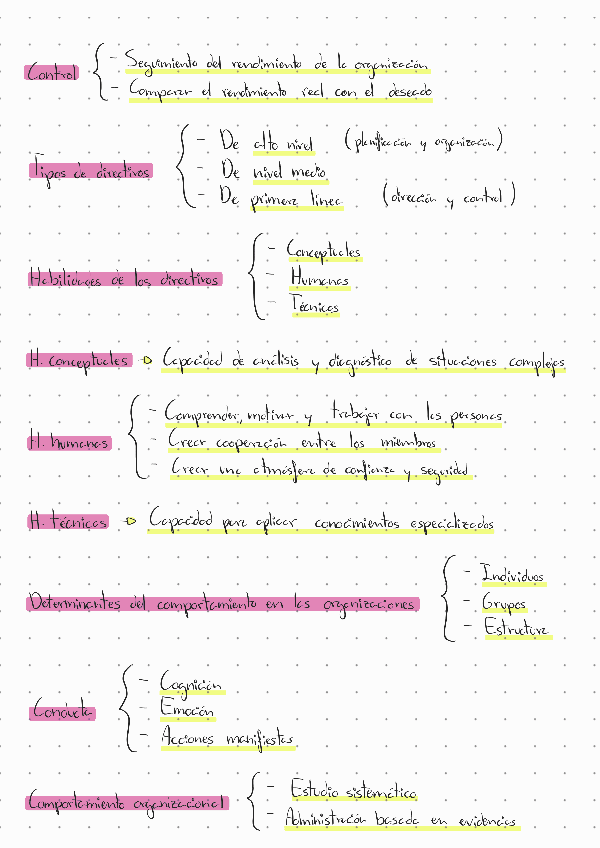 Control
- Seguimiento del rendimiento de la organización
- Comparar el rendimiento real con el deseado
Tipos de directivos
- De alto nivel (planificación y organización)
- De nivel medio
- De primera línea (dirección y control)
Habilidades de los directivos
- Conceptuales
- Humanas
- Técnicas
H. conceptuales → Capacidad de análisis y diagnóstico de situaciones complejas
H. humanas
- Comprender, motivar y trabajar con las personas
- Crear cooperación entre los miembros
- Crear una atmósfera de confianza y seguridad
H. técnicas → Capacidad para aplicar conocimientos especializados
Determinantes del comportamiento en las organizaciones
- Individuos
- Grupos
- Estructura
Conducta
- Cognición
- Emoción
- Acciones manifiestas
Comportamiento organizacional
- Estudio sistemático
- Administración basada en evidencias